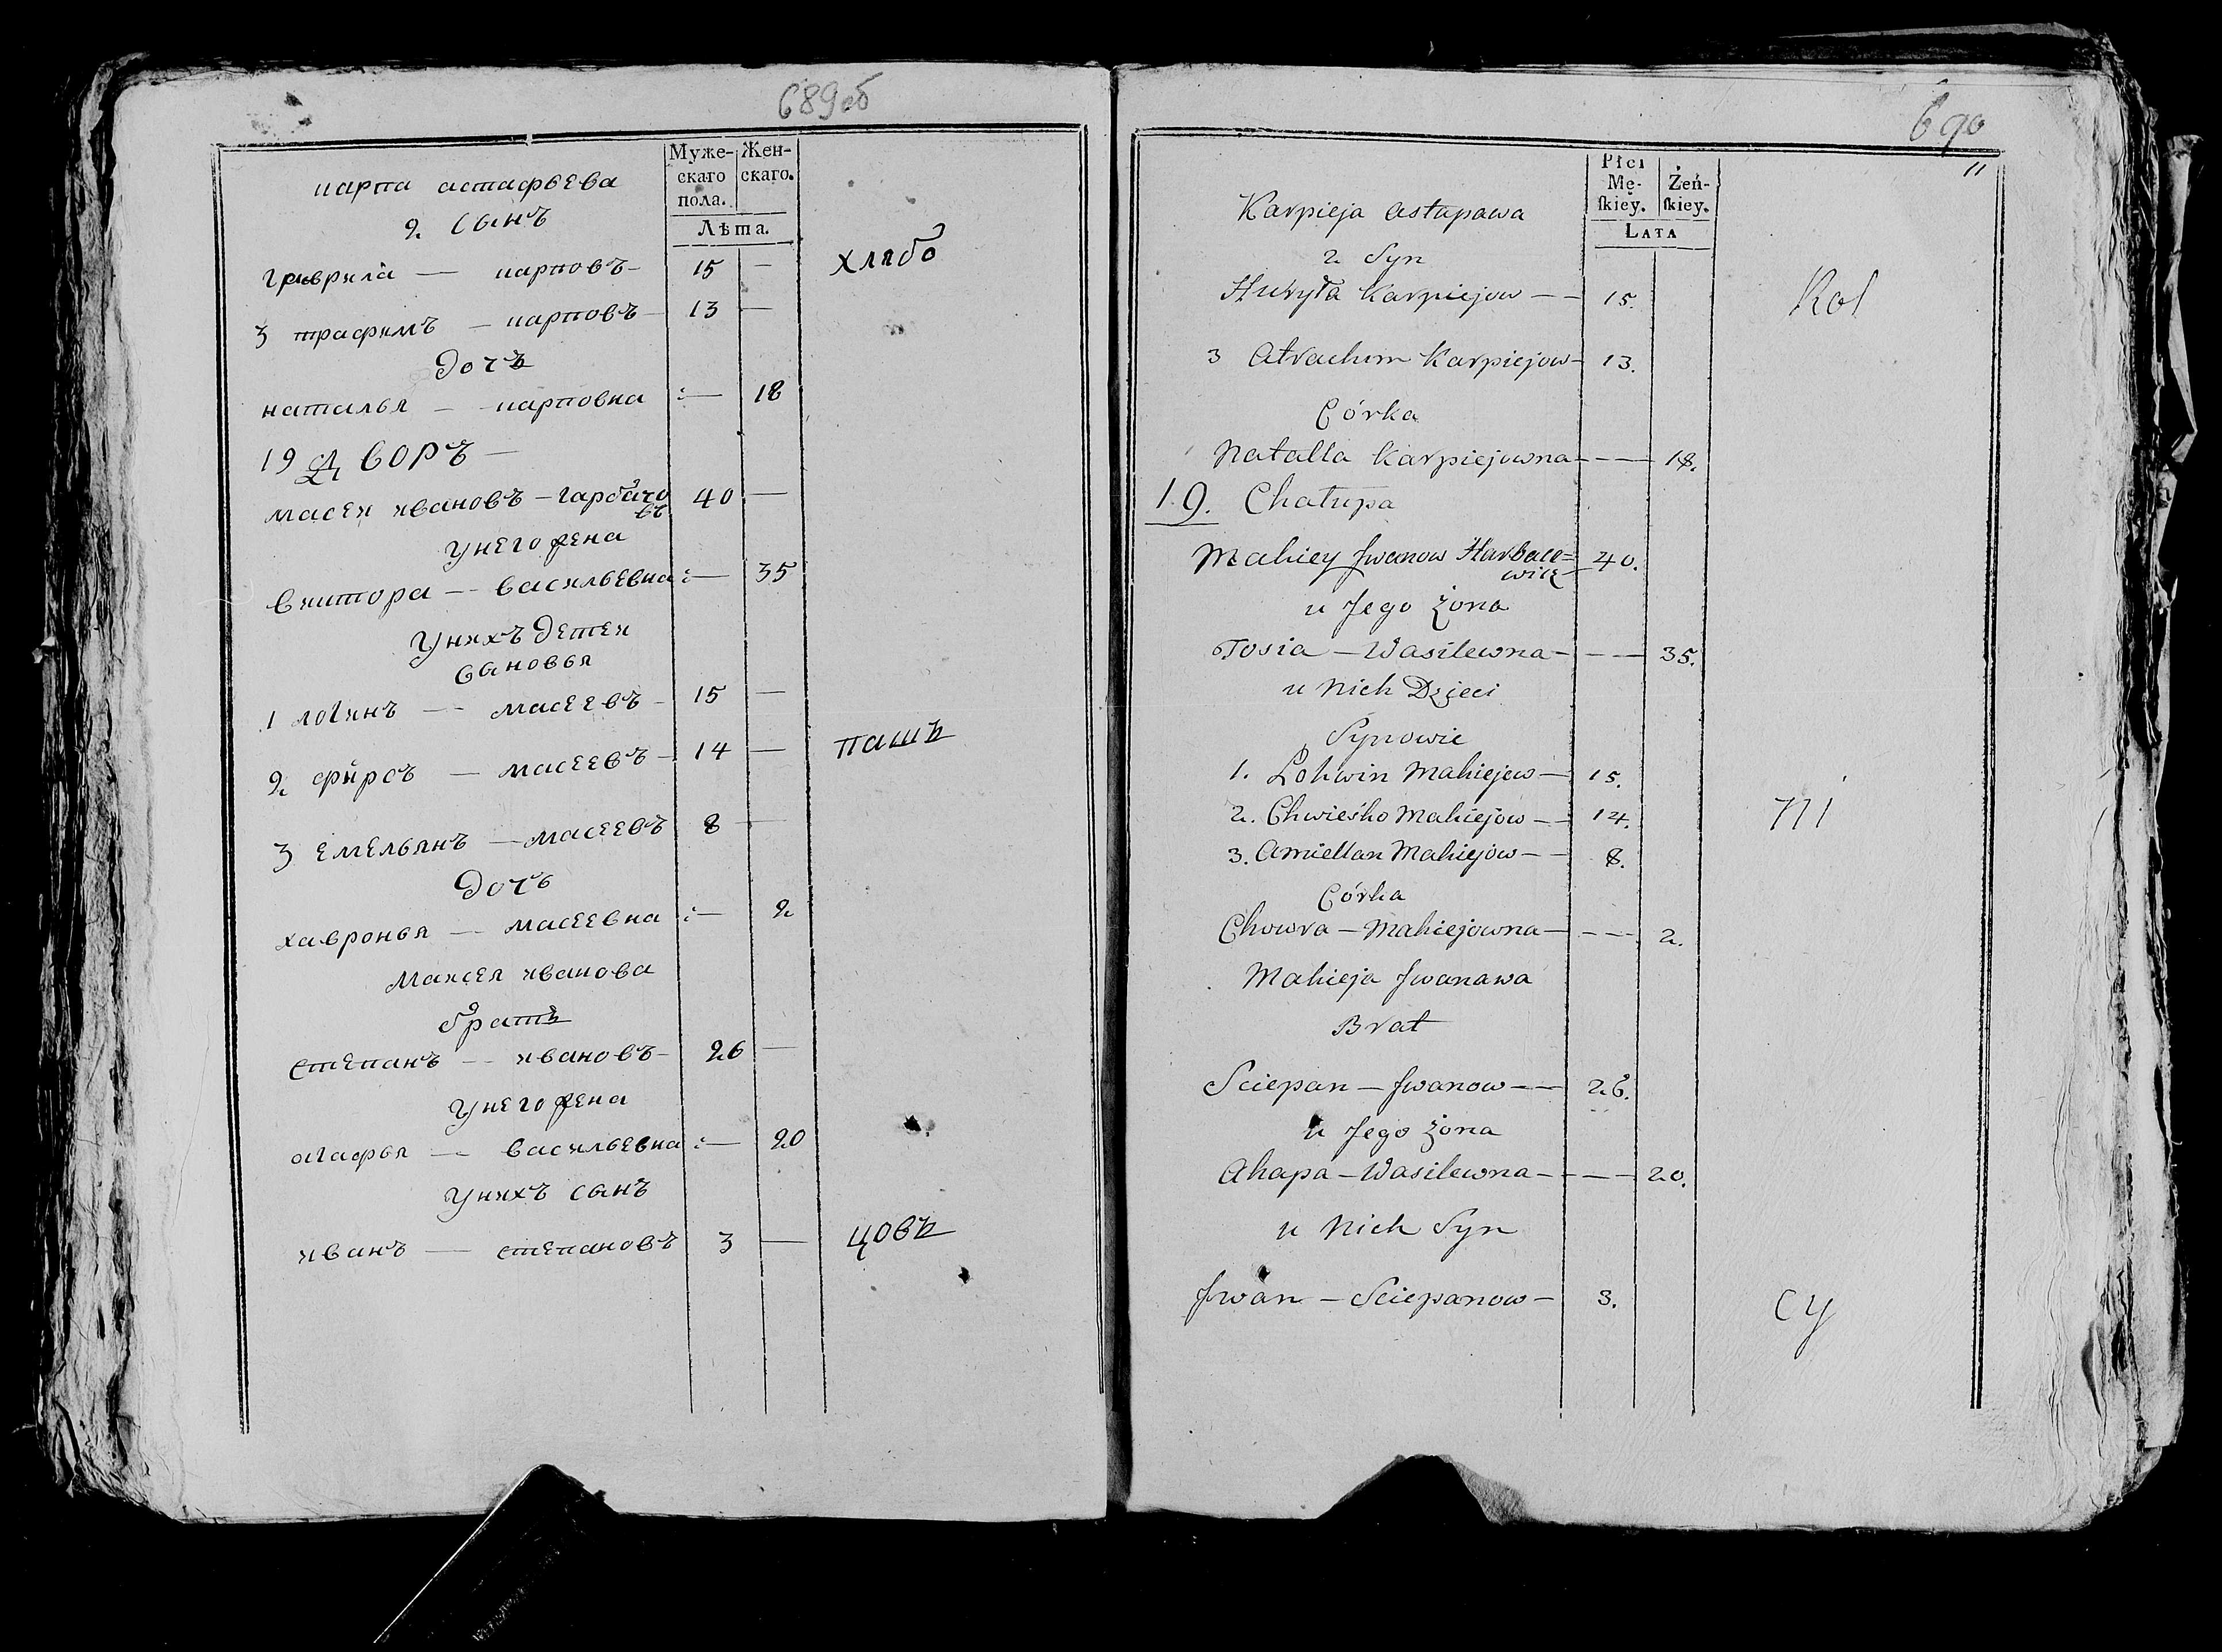 689об
Муже-
скаго
пола.
Жен-
скаго.
Лѣта.
карпа астафьева
2 сынъ
гаврила — карповъ — 15 —
хлѣбо
3 трафимъ — карповъ — 13 —
дочь
наталья — карповна — 18
19 дворъ —
масеи ивановъ — гарбачо 40 —
въ
унего жена
васильевна — 35
унихъ детеи
сыновья
1 логинъ — масеевъ — 15 —
2 — масеевъ — 14 —
пашъ
3 емельянъ — масеевъ 8 —
дочь
хавронья — масеевна — 2
иванова
братъ
степанъ — ивановъ — 26 —
унего жена
агафья — васильевна — 20
унихъ сынъ
иванъ — степановъ 3 —
цовъ
690
11
Płci
Mę-
ſkiey.
Żeń-
ſkiey.
LATA
Karpieja Astapawa
2 Syn
Hawryła Karpiejow — — 15.
Kol
3 Atrachim Karpiejow — 13.
Córka
Natalla Karpiejowna — — — 18.
19. Chałupa
Mahiey Jwanow Harbace= 40.
wicz
u Jego żona
Tosia — Wasilewna — — — 35.
u Nich Dzieci
Synowie
1. Lohwin Mahiejew — 15.
2. Chwieśko Mahiejow — — 14.
3. Amiellan Mahiejow — — 8.
Córka
Chowra — Mahiejowna — — — 2.
Mahieja Jwanawa
Brat
Sciepan — Jwanow — — 26.
u Jego żona
Ahapa — Wasilewna — — — 20.
u Nich Syn
Jwan — Sciepanow — 3.
cy